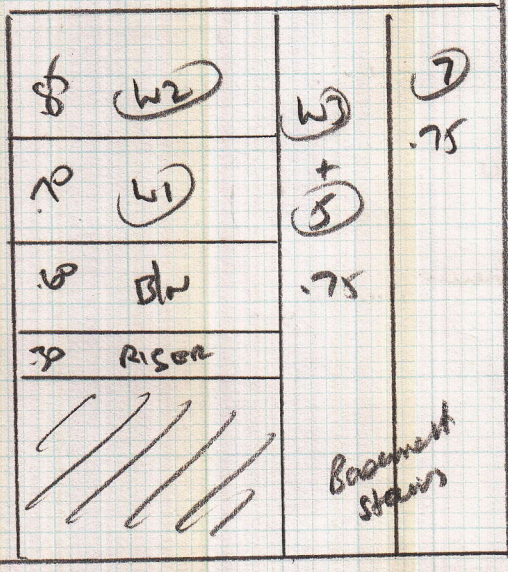 W2
.70 W1
.60 B/W
.30 RISER
W3
+
5
.75
7
.75
Basement
stairs